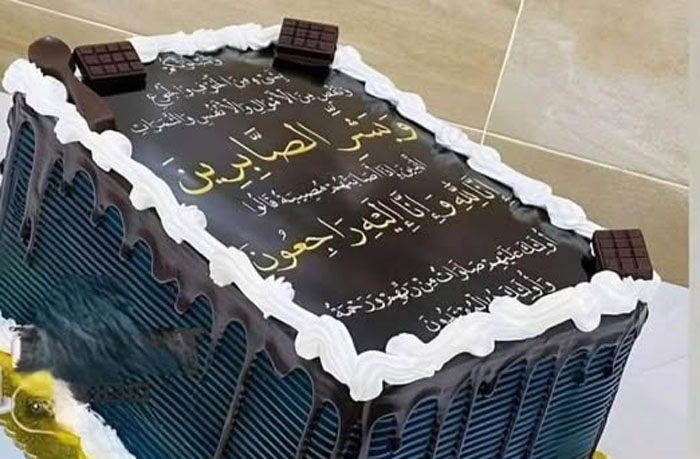 ولنبلونكم
بشيء من الخوف والجوع
ونقص من الأموال والأنفس والثمرات
وَبَشِّرِ الصَّابِرِينَ
الذين إذا أصابتهم مصيبة قالوا
إنا لله وإنا إليه راجعون
أولئك عليهم صلوات من ربهم ورحمة
وأولئك هم المهتدون